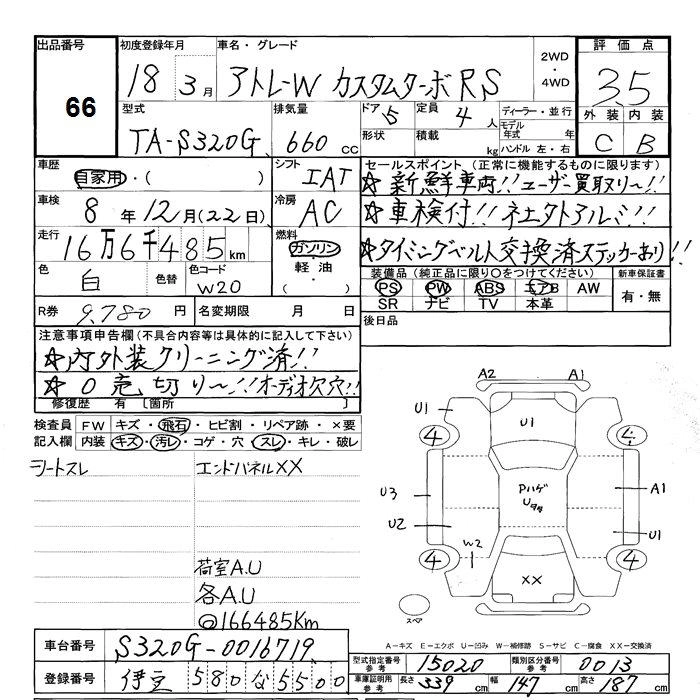 出品番号 初度登録年月 車名・グレード 2WD・4WD 評価点
66 18 3月 アトレーW カスタムターボRS 3.5
型式 排気量 ドア 5 定員 4人 ディーラー・並行 外装 内装
TA-S320G 660cc 形状 積載 kg モデル年式 年式 ハンドル 左・右 C B
車歴 自家用・( ) シフト IAT セールスポイント (正常に機能するものに限ります)
☆新鮮車両!!ユーザー買取り~!!
車検 8年12月(22日) 冷房 AC ☆車検付!!社外アルミ!!
走行 16万6千485km 燃料 ガソリン・軽油・( ) ☆タイミングベルト交換済ステッカーあり!!
色 白 色替 色コード W20 装備品 (純正品に限り○をつけてください) 新車保証書
PS PW ABS エアB AW 有・無
SR ナビ TV 本革
R券 9,780円 名変期限 月 日 後日品
注意事項申告欄(不具合内容等は具体的に記入して下さい)
☆内外装クリーニング済!!
☆0売切り~!!オーディオ欠穴!!
修復歴 有 [箇所 ]
検査員記入欄 FW キズ・飛石・ヒビ割・リペア跡・×要
内装 キズ・汚レ・コゲ・穴・スレ・キレ・破レ
シートスレ エンドパネルXX
荷室A.U
各A.U
@166485Km
A2 A1
U1 U1
4 4
U3 PハゲU多タ A1
U2 U1
W2
4 4
XX
スペア
A-キズ E-エクボ U-凹み W-補修跡 S-サビ C-腐食 XX-交換済
車台番号 S320G-0016719
型式指定番号 参考 15020 類別区分番号 参考 0013
登録番号 伊豆 580 な 5500
車庫証明用 参考 長さ 339cm 幅 147cm 高さ 187cm